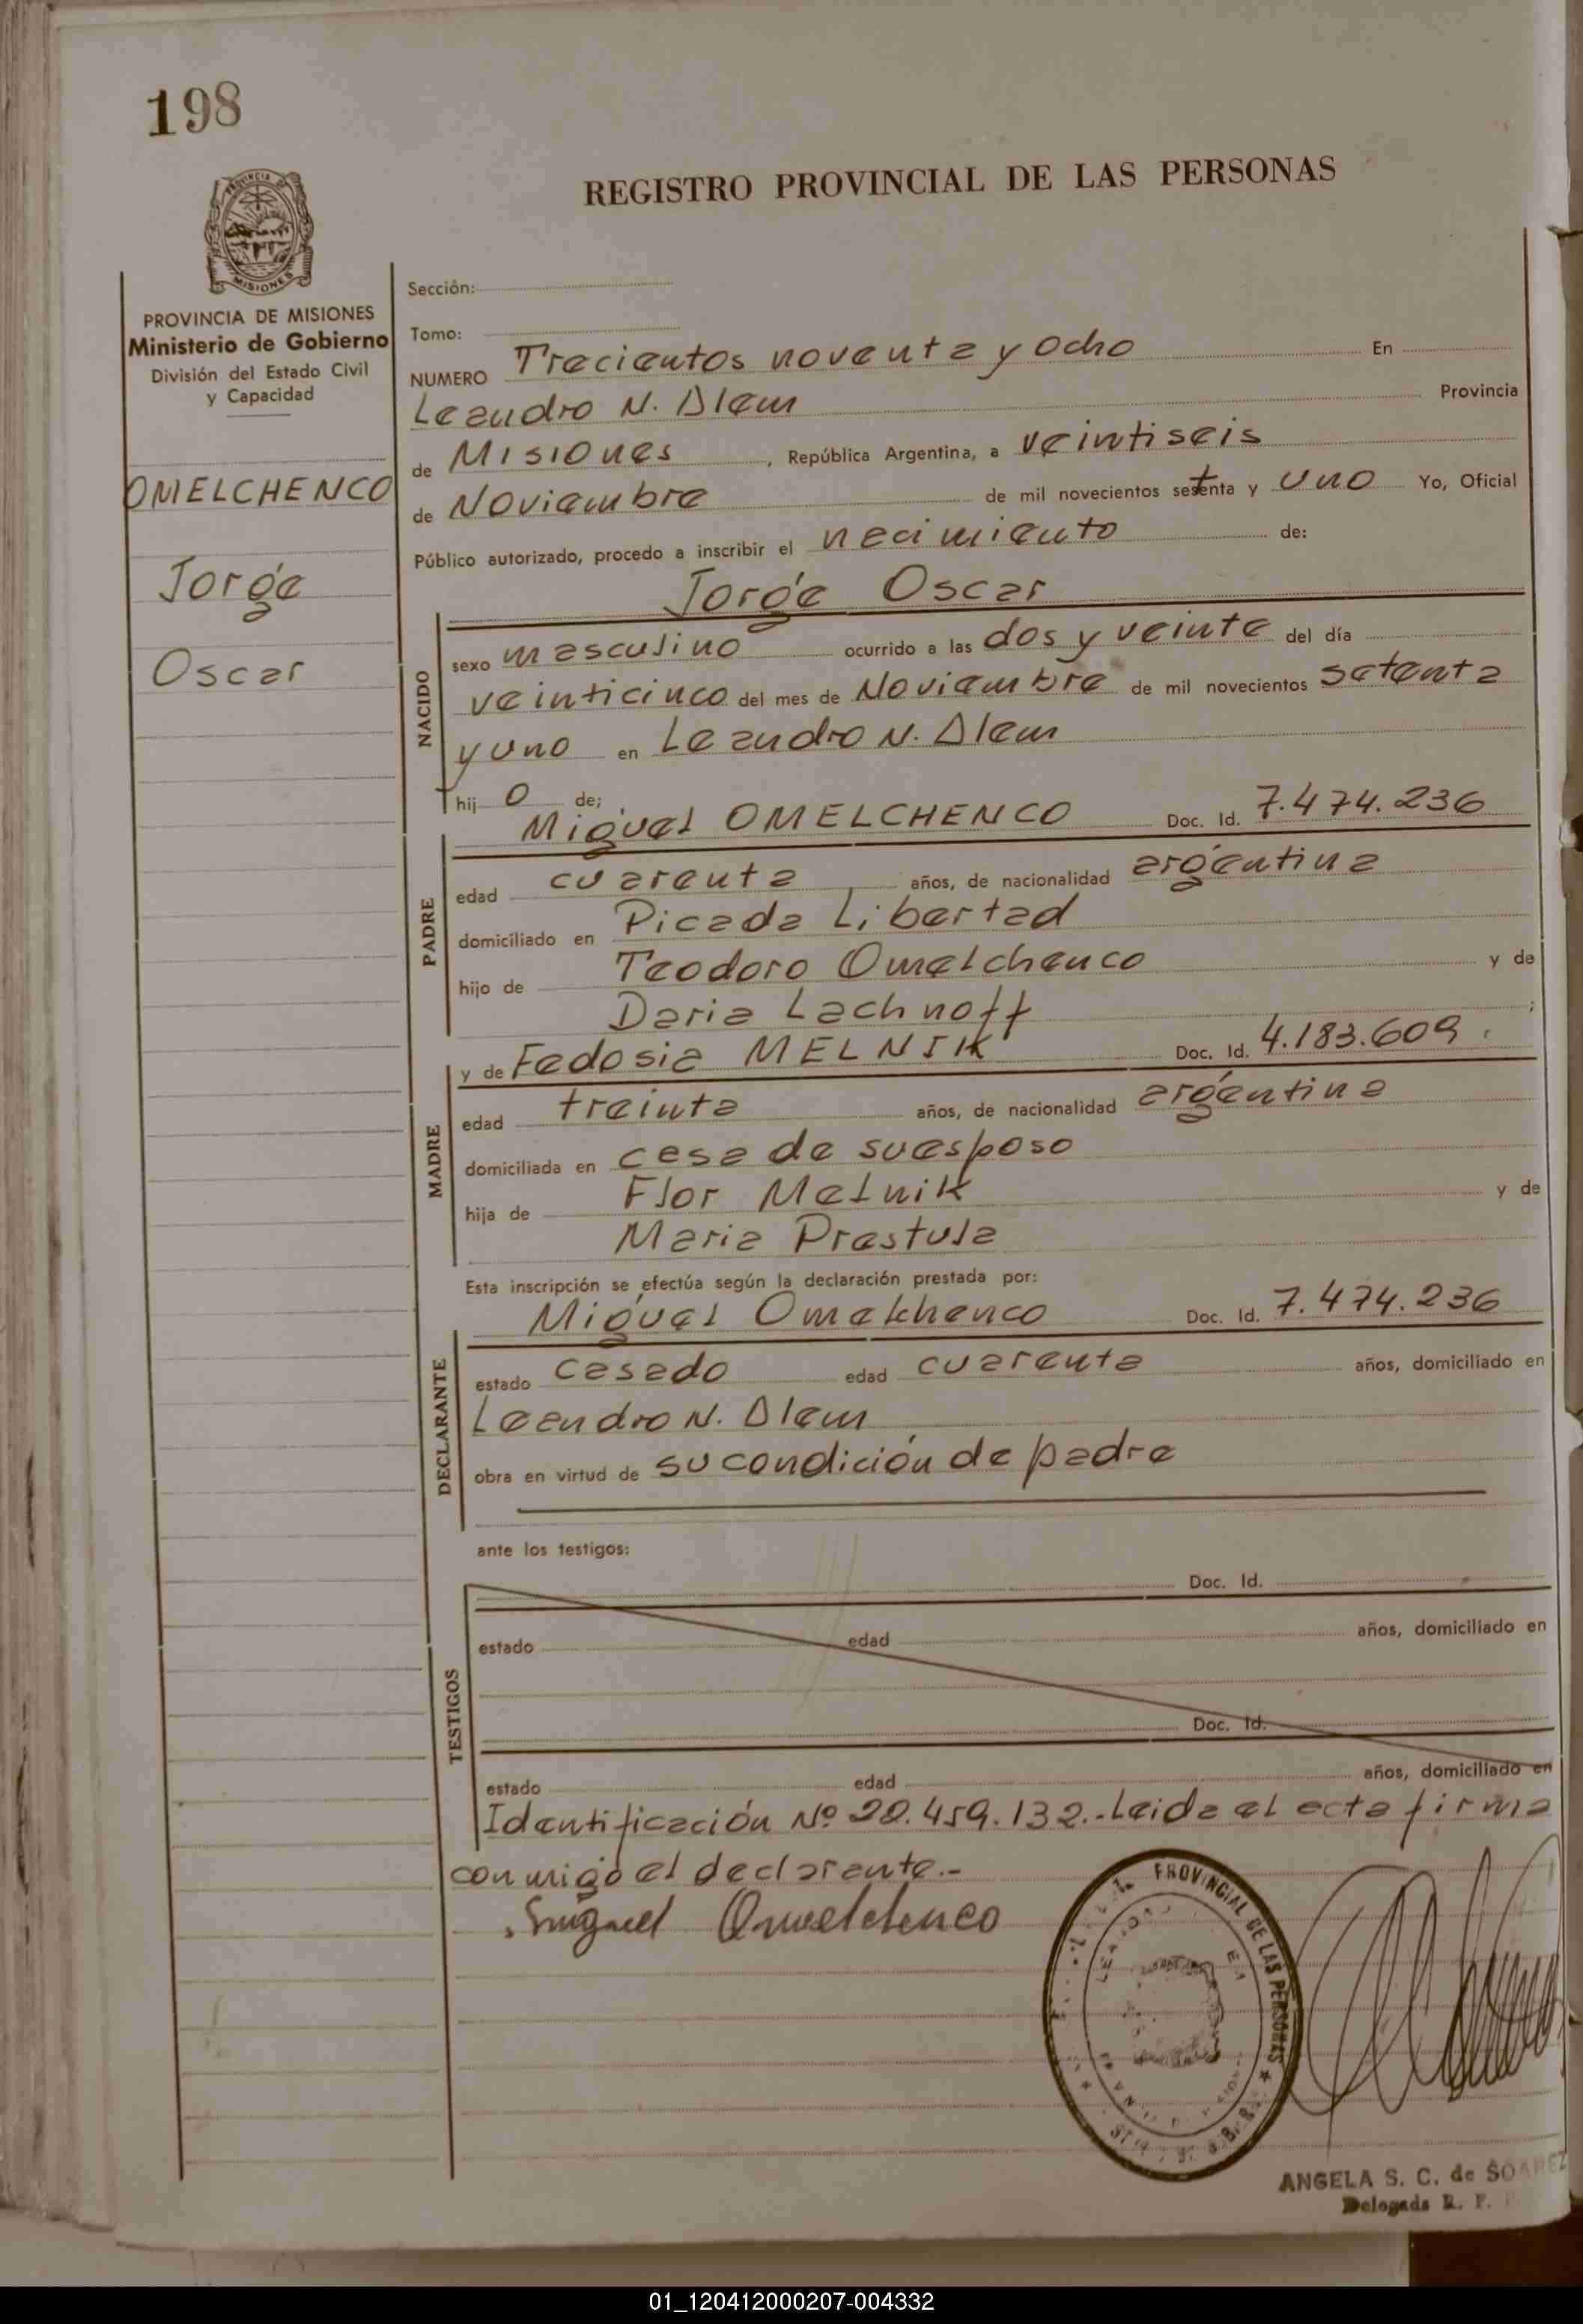 198
PROVINCIA DE MISIONES
REGISTRO PROVINCIAL DE LAS PERSONAS
PROVINCIA DE MISIONES
Ministerio de Gobierno
División del Estado Civil
y Capacidad
OMELCHENCO
Jorge
Oscar
Sección:
Tomo:
NUMERO Trecientos noventa y ocho En
Leandro N. Alem Provincia
de Misiones, República Argentina, a veintiseis
de Noviembre de mil novecientos setenta y uno Yo, Oficial
Público autorizado, procedo a inscribir el nacimiento de:
Jorge Oscar
NACIDO
sexo masculino ocurrido a las dos y veinte del día
veinticinco del mes de Noviembre de mil novecientos setenta
y uno en Leandro N. Alem
hij o de;
Miguel OMELCHENCO Doc. Id. 7.474.236
PADRE
edad cuarenta años, de nacionalidad argentina
domiciliado en Picada Libertad
hijo de Teodoro Omelchenco y de
Daria Lachnoff ;
y de Fedosia MELNIK Doc. Id. 4.183.609
MADRE
edad treinta años, de nacionalidad argentina
domiciliada en casa de su esposo
hija de Flor Melnik y de
Maria Prestula
Esta inscripción se efectúa según la declaración prestada por:
Miguel Omelchenco Doc. Id. 7.474.236
DECLARANTE
estado casado edad cuarenta años, domiciliado en
Leandro N. Alem
obra en virtud de su condición de padre
ante los testigos:
Doc. Id.
TESTIGOS
estado edad años, domiciliado en
Doc. Id.
estado edad años, domiciliado en
Identificación Nº 22.459.132.- Leida el acta firma
conmigo el declarante.-
Miguel Omelchenco
PROVINCIAL DE LAS PERSONAS
ANGELA S. C. de SOAREZ
Delegada R. P.
01_120412000207-004332